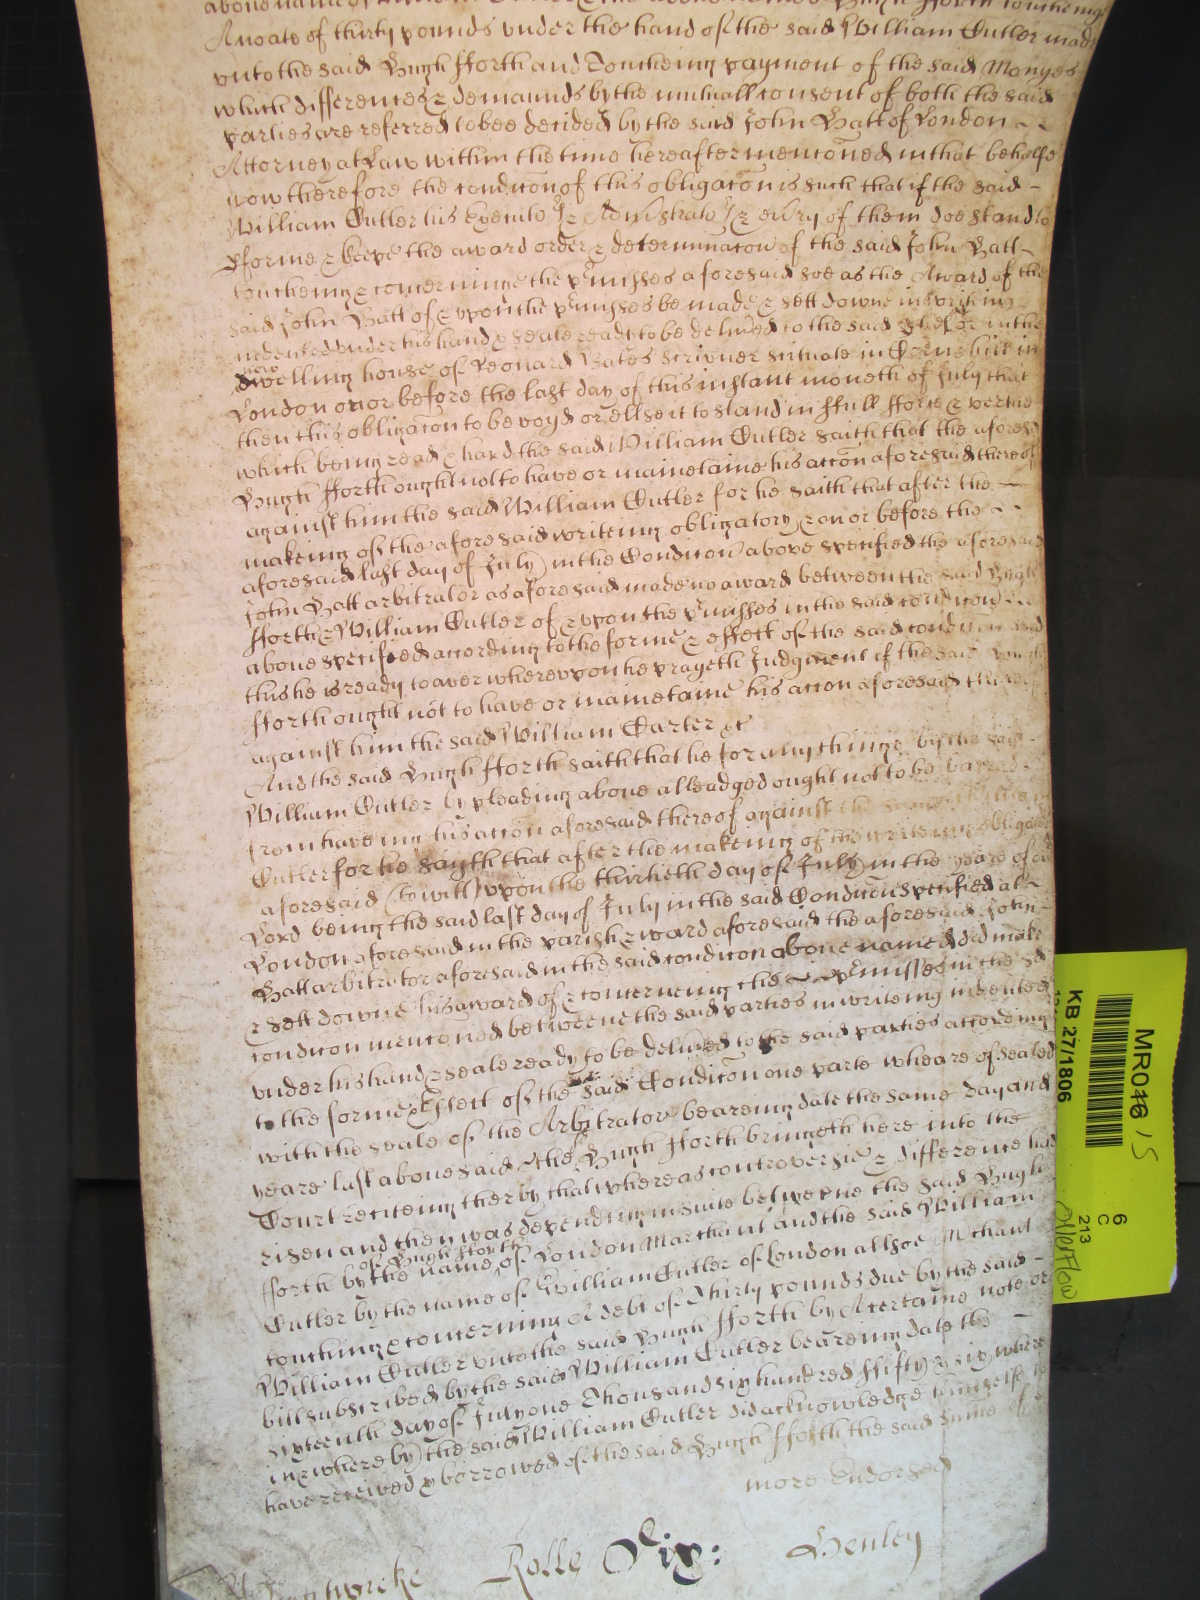 above name of William Cutler & the above named Hugh fforth touching
A noate of thirty pounds under the hand of the said William Cutler made
unto the said Hugh fforth and Toucheing payment of the said Monyes
which differences & demaunds by the mutuall consent of both the said
parties are referred to bee decided by the said John Batt of London
Attorney at Law within the time hereafter mencoñed in that behalfe
now therefore the condicoñ of this obligacoñ is such that if the said
William Cutler his Executo Administrato & eu'ry of them doe stand to
pforme & keepe the award order & determinacoñ of the said John Batt
toucheing & concerninge the pmisses aforesaid soe as the Award of the
said John Batt of & vpon the pmisses be made & sett downe in writing
indented under his hand & seale ready to be delived to the said in the
now
dwelling house of Leonard Bates Scrivner scituate in Cornehill in
London on or before the last day of this instant moneth of July that
then this obligacoñ to be voyd or ellse it to stand in ffull fforce & vertue
which being read & hard the said William Cutler saith that the aforesd
Hugh fforth ought not to have or mainetaine his accoñ aforesaid thereof
against him the said William Cutler for he saith that after the
makeing of the aforesaid writeing obligatory & on or before the
aforesaid last day of July in the Condicoñ above specified the aforesaid
John Batt arbitrator as aforesaid made no award betweene the said Hugh
fforth & William Cutler of & vpon the pmisses in the said condicoñ
above specified according to the forme & effect of the said condicoñ and
this he is ready to aver wherevpon he prayeth Judgment if the said Hugh
fforth ought not to have or mainetaine his accoñ aforesaid thereof
against him the said William Carter &c
And the said Hugh fforth saith that he for any thinge by the said
William Cutler by pleading above alleadged ought not to be barred
from haveing his accoñ aforesaid thereof against the said William
Cutler for he sayth that after the makeing of the writeing obligatory
aforesaid (to witt) vpon the thirtieth day of July in the yeare of our
Lord being the said last day of July in the said Condicoñ specified at
London aforesaid in the parish & ward aforesaid the aforesaid John
Batt arbitrator aforesaid in the said condicon above named did make
& sett downe his award of & concerneing the pmisses in the sd
condicon menconed betweene the said parties in writeing indented
vnder his hand & seale ready to be delived to the said parties according
to the forme & Effect of the said Condicoñ one parte wheareof sealed
with the seale of the Arbitrator beareing date the same day and
yeare last abovesaid the Hugh fforth bringeth here into the
Court reciteing therby that whereas controversie & difference had
risen and then was depending in suite betweene the said Hugh
of Hugh fforth
fforth by the name of London Marchant and the said William
Cutler by the name of William Cutler of London allsoe Mchant
touching & concerning A debt of Thirty pounds due by the said
William Cutler unto the said Hugh fforth by A certaine note or
bill subscribed by the said William Cutler beareing date the
sixteenth day of July one Thousand six hundred ffifty & six where
in & where by the said William Cutler did acknowledge himselfe to
have received & borrowed of the said Hugh fforth the said summe
more Endorsed
Rolle Six: Henley
KB 27/1806
MR046 / 5
6
C
213
Overflow